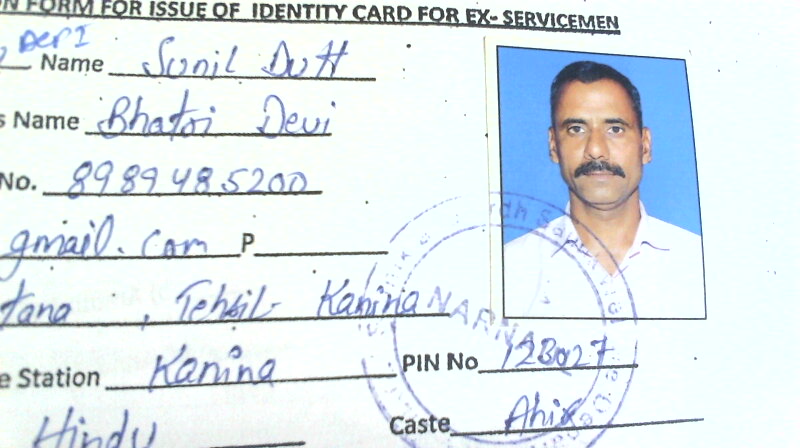 N FORM FOR ISSUE OF IDENTITY CARD FOR EX- SERVICEMEN
Name Sunil Dutt
s Name Bhatri Devi
No. 8989485200
gmail.com P
tana , Tehsil- Kanina
e Station Kanina PIN No 123027
Hindu Caste Ahir
NARNA